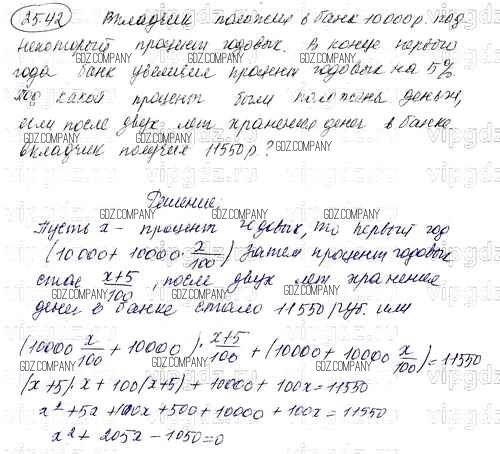 2542 Вкладчик положил в банк 10000 р. под
некоторый процент годовых. В конце первого
года банк увеличил процент годовых на 5%
Под какой процент были положены деньги,
если после двух лет хранения денег в банке
вкладчик получил 11550 р?
Решение
Пусть x - процент годовых, то первый год
(10000 + 10000 · x/100) Затем процент годовых
стал x+5/100, после двух лет хранения
денег в банке стало 11550 руб. или
(10000 x/100 + 10000) · x+5/100 + (10000 + 10000 x/100) = 11550
(x+5) · x + 100(x+5) + 10000 + 100x = 11550
x² + 5x + 100x + 500 + 10000 + 100x = 11550
x² + 205x - 1050 = 0